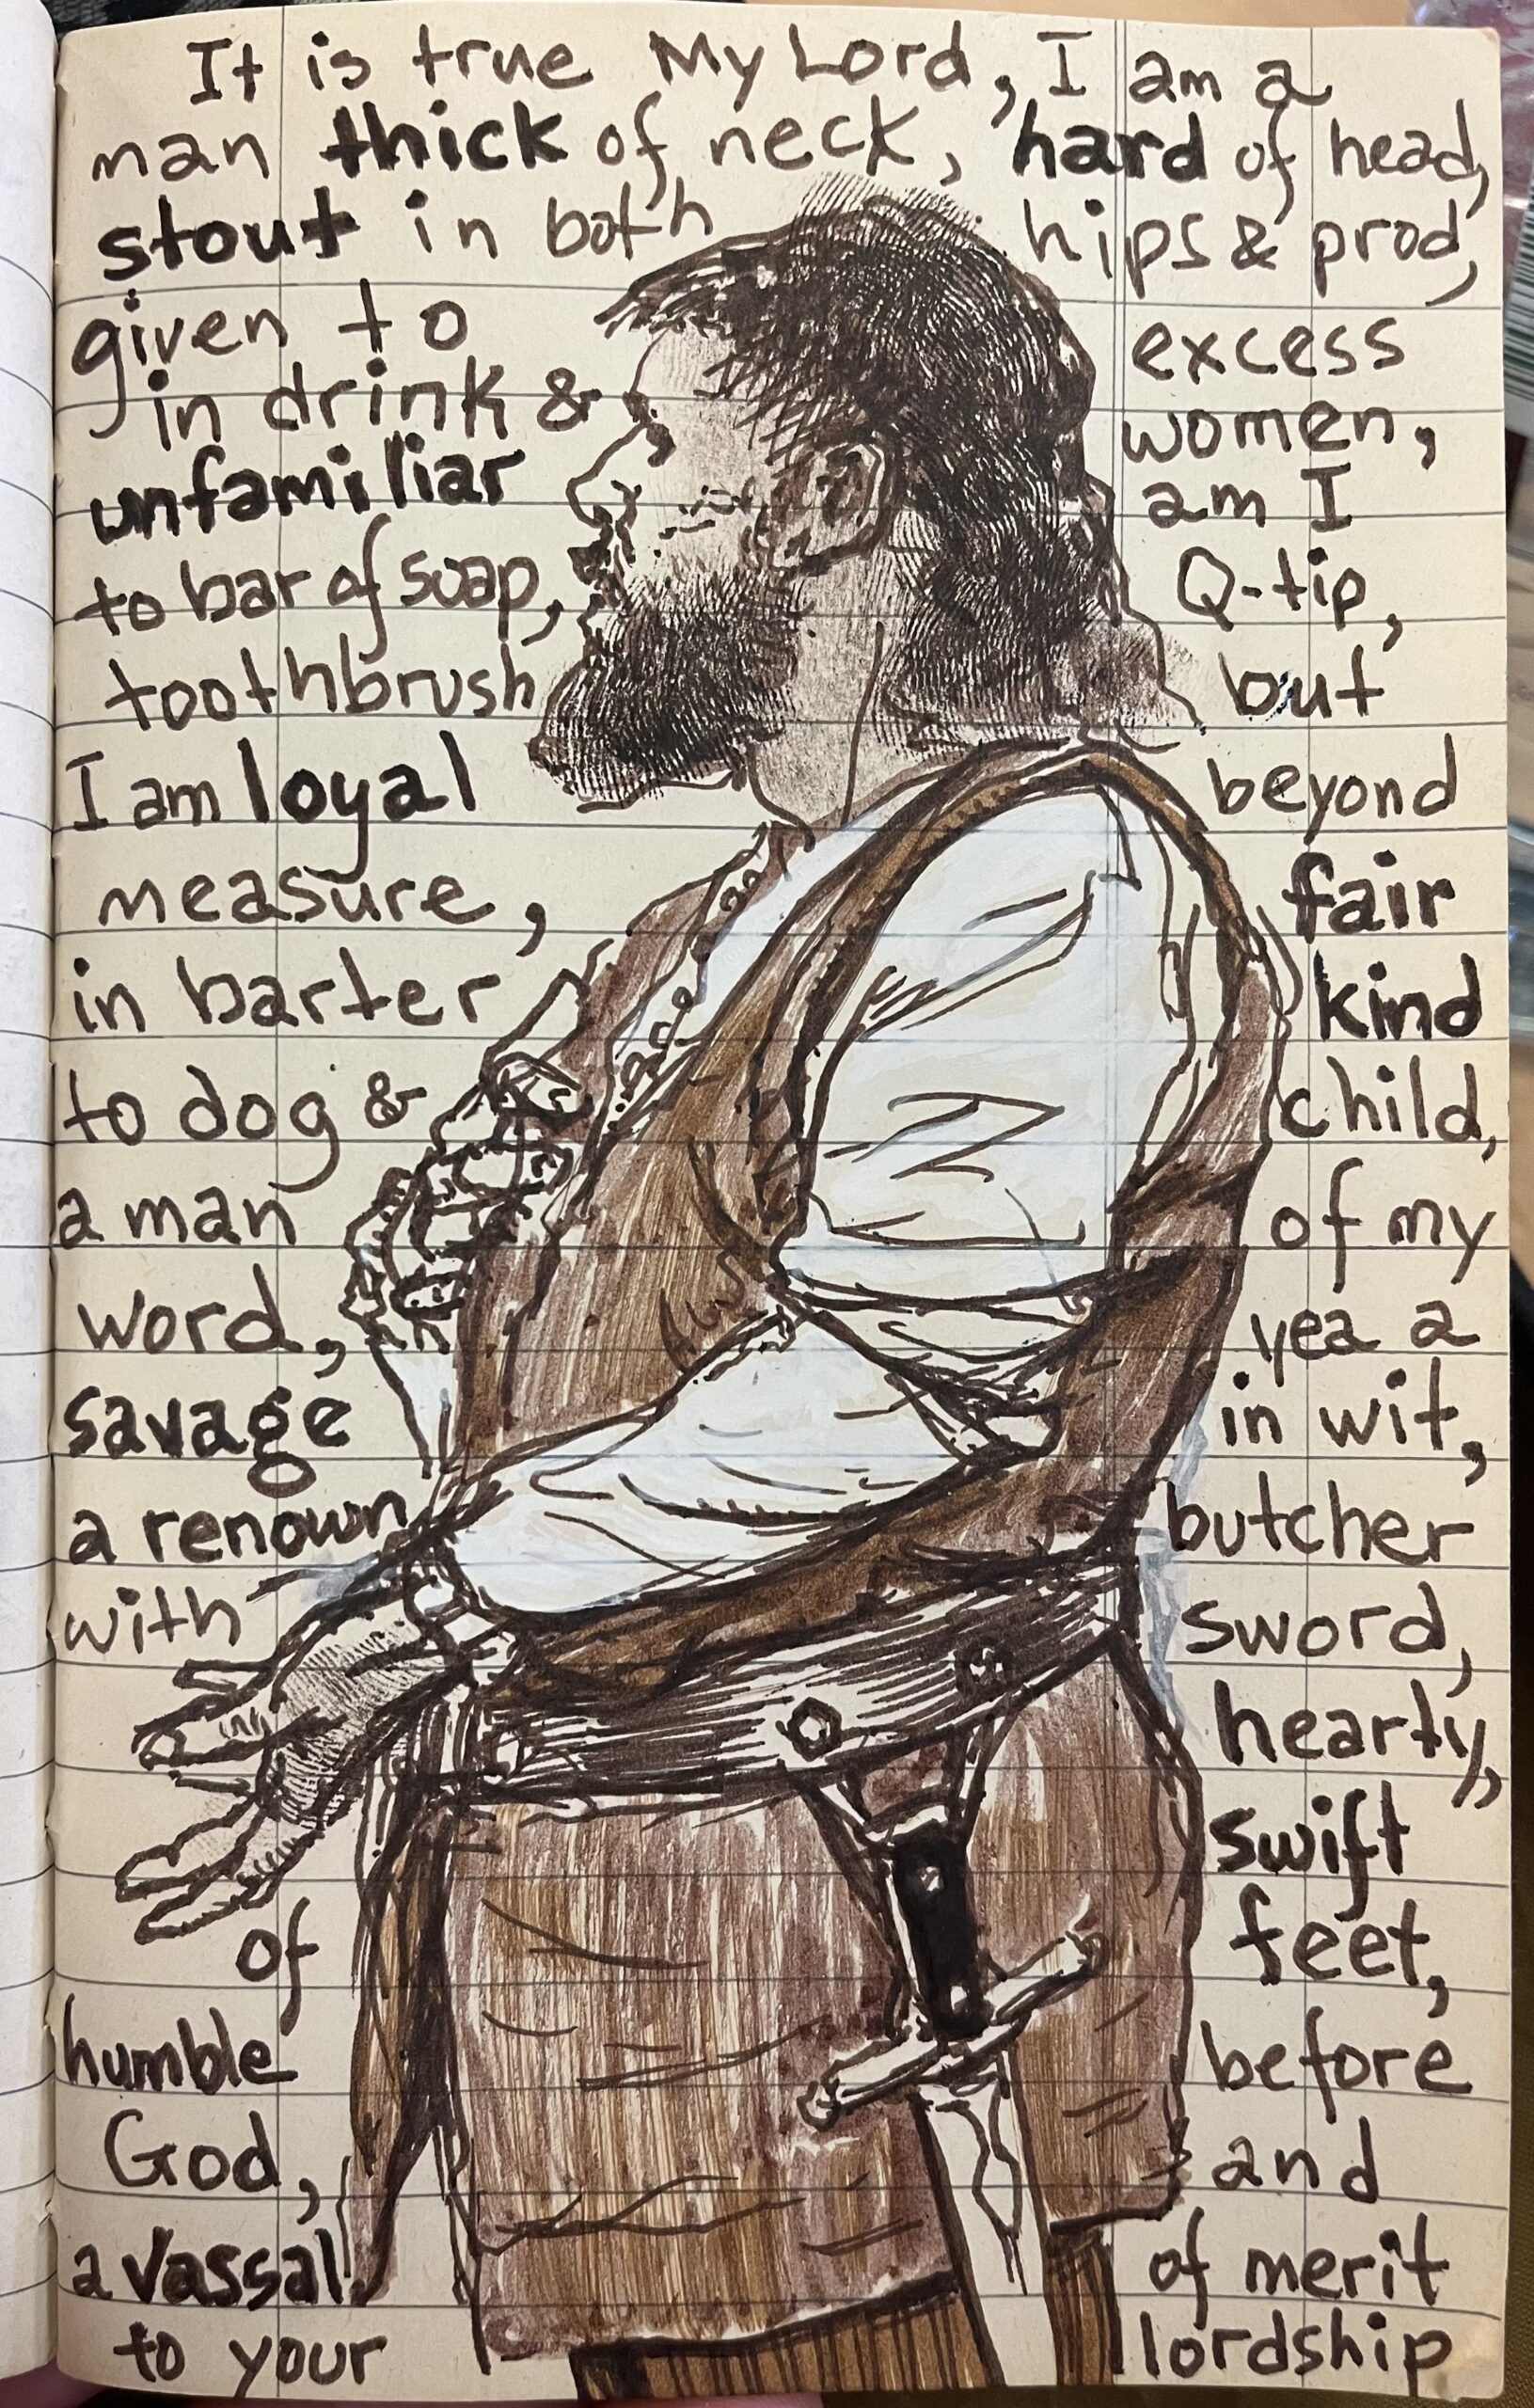 It is true My Lord, I am a
man thick of neck, hard of head,
stout in both hips & prod,
given to excess
in drink & women,
unfamiliar am I
to bar of soap, Q-tip,
toothbrush but
I am loyal beyond
measure, fair
in barter kind
to dog & child,
a man of my
word, yea a
savage in wit,
a renown butcher
with sword,
hearty,
swift
of feet,
humble before
God, and
a vassal of merit
to your lordship